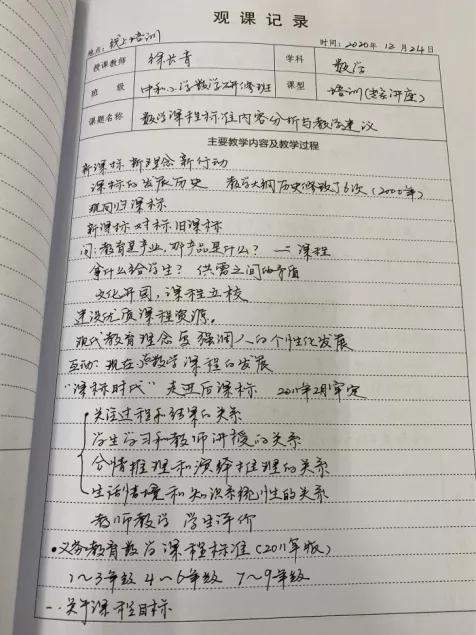 观课记录
地点：线上培训
时间：2020年12月24日
授课教师 徐兴青 学科 数学
班级 中和小学数学研修班 课型 培训（专家讲座）
课题名称 数学课程标准内容分析与教学建议
主要教学内容及教学过程
新课标 新理念 新行动
课标的发展历史 教学大纲历史修改了6次（2000年）
现回归课标
新课标对标旧课标
问：教育是产业，那产品是什么？ — 课程
拿什么给学生？ 供需之间的矛盾
文化开园，课程立校
建设优质课程资源。
现代教育理念 强调人的个性化发展
互动：现在 数学课程的发展
"课标时代" 走进后课标 2011年2月审定
关注过程和结果的关系
学生学习和教师讲授的关系
合情推理和演绎推理的关系
生活情境和知识系统性的关系
教师教学 学生评价
•义务教育数学课程标准（2011年版）
1～3年级 4～6年级 7～9年级
一.关于课程目标